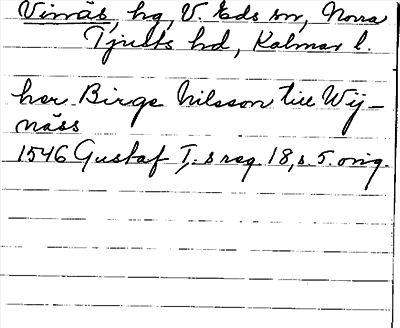 Vinäs, hg, V. Eds sn, Norra
Tjusts hd, Kalmar l.
her Birge Nilsson till Wij-
näss
1546 Gustaf I,s reg. 18, s. 5. orig.